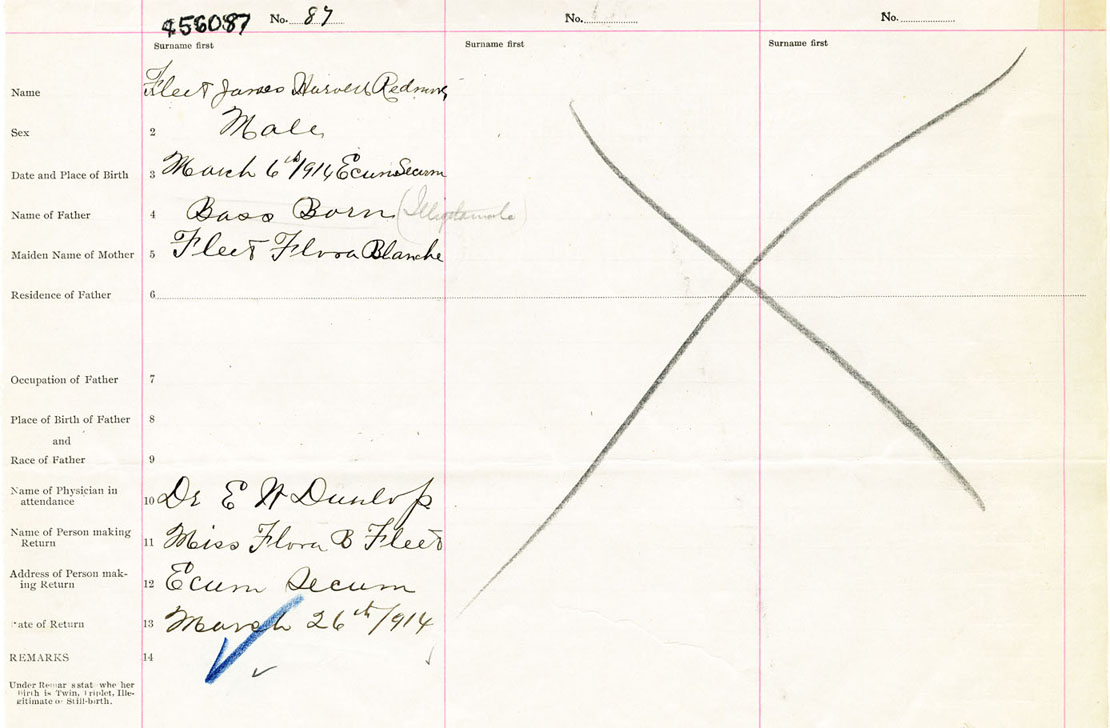 456087 No. 87 No. No.
Surname first Surname first Surname first
Name Fleet James Harvell Redmun
Sex 2 Male
Date and Place of Birth 3 March 6th/914 Ecum Secum
Name of Father 4 Bass Born (Illigitamate)
Maiden Name of Mother 5 Fleet Flora Blanche
Residence of Father 6
Occupation of Father 7
Place of Birth of Father 8
and
Race of Father 9
Name of Physician in
attendance 10 Dr E W Dunlop
Name of Person making
Return 11 Miss Flora B Fleet
Address of Person mak-
ing Return 12 Ecum Secum
ate of Return 13 March 26th/914
REMARKS 14
Under Remar s stat whe her
Birth is Twin, Triplet, Ille-
gitimate or Still-birth.